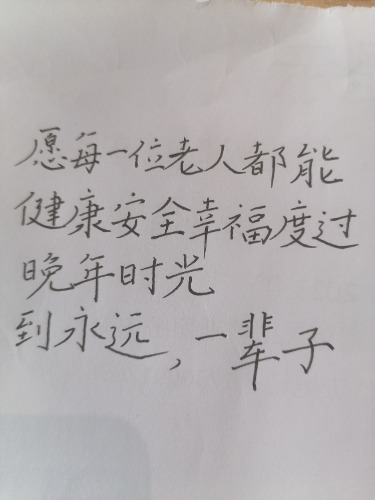 愿每一位老人都能
健康安全幸福度过
晚年时光
到永远,一辈子